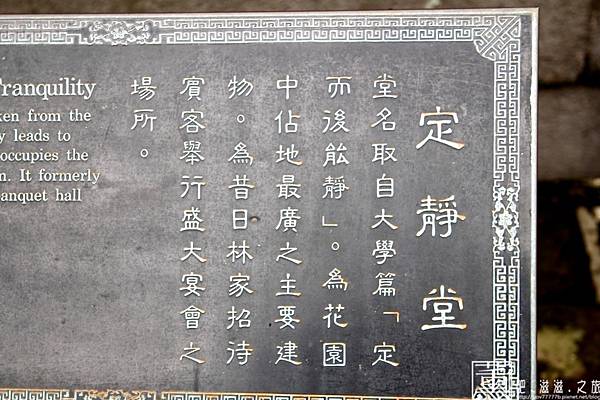 定靜堂
堂名取自大學篇「定
而後能靜」。為花園
中佔地最廣之主要建
物。為昔日林家招待
賓客舉行盛大宴會之
場所。
Tranquility
ken from the
y leads to
occupies the
n. It formerly
anquet hall
滋滋.之旅